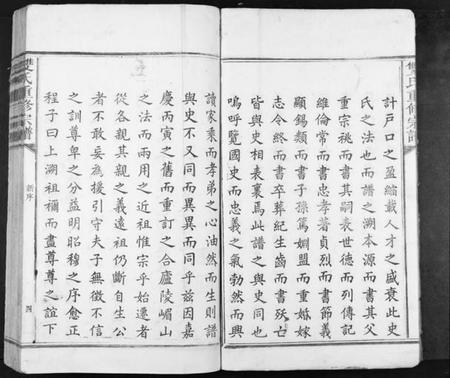 雙氏重修宗譜
計戶口之盈縮載人才之盛衰此史
氏之法也而譜之溯本源而書其父
重宗祧而書其嗣表世德而列傳記
維倫常而書忠孝著貞烈而書節義
顯錫類而書子孫篤婣盟而重婚嫁
志令終而書卒葬紀生齒而書殀亡
皆與史相表裏焉此譜之與史同也
嗚呼覽國史而忠義之氣勃然而興
讀家乘而孝弟之心油然而生則譜
與史不又同而異異而同乎茲因嘉
慶丙寅之舊而重訂之合廬陵嵋山
之法而兩用之近祖惟宗乎始遷者
從各親其親之義遠祖仍斷自生公
者不敢妄為援引守夫子無徵不信
之訓尊卑之分益明昭穆之序愈正
程子曰上溯祖禰而盡尊尊之誼下
雙氏重修宗譜
新序
四